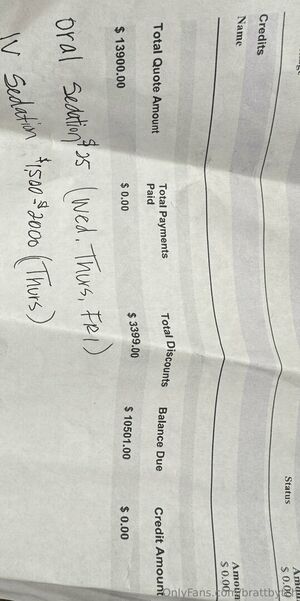 Status
Amount
$ 0.00
Credits
Name
Amount
$ 0.00
Total Quote Amount Total Payments Paid Total Discounts Balance Due Credit Amount
$ 13900.00 $ 0.00 $ 3399.00 $ 10501.00 $ 0.00
Oral Sedation $25 (Wed, Thurs, FRI)
IV Sedation $1,500-$2000 (Thurs)